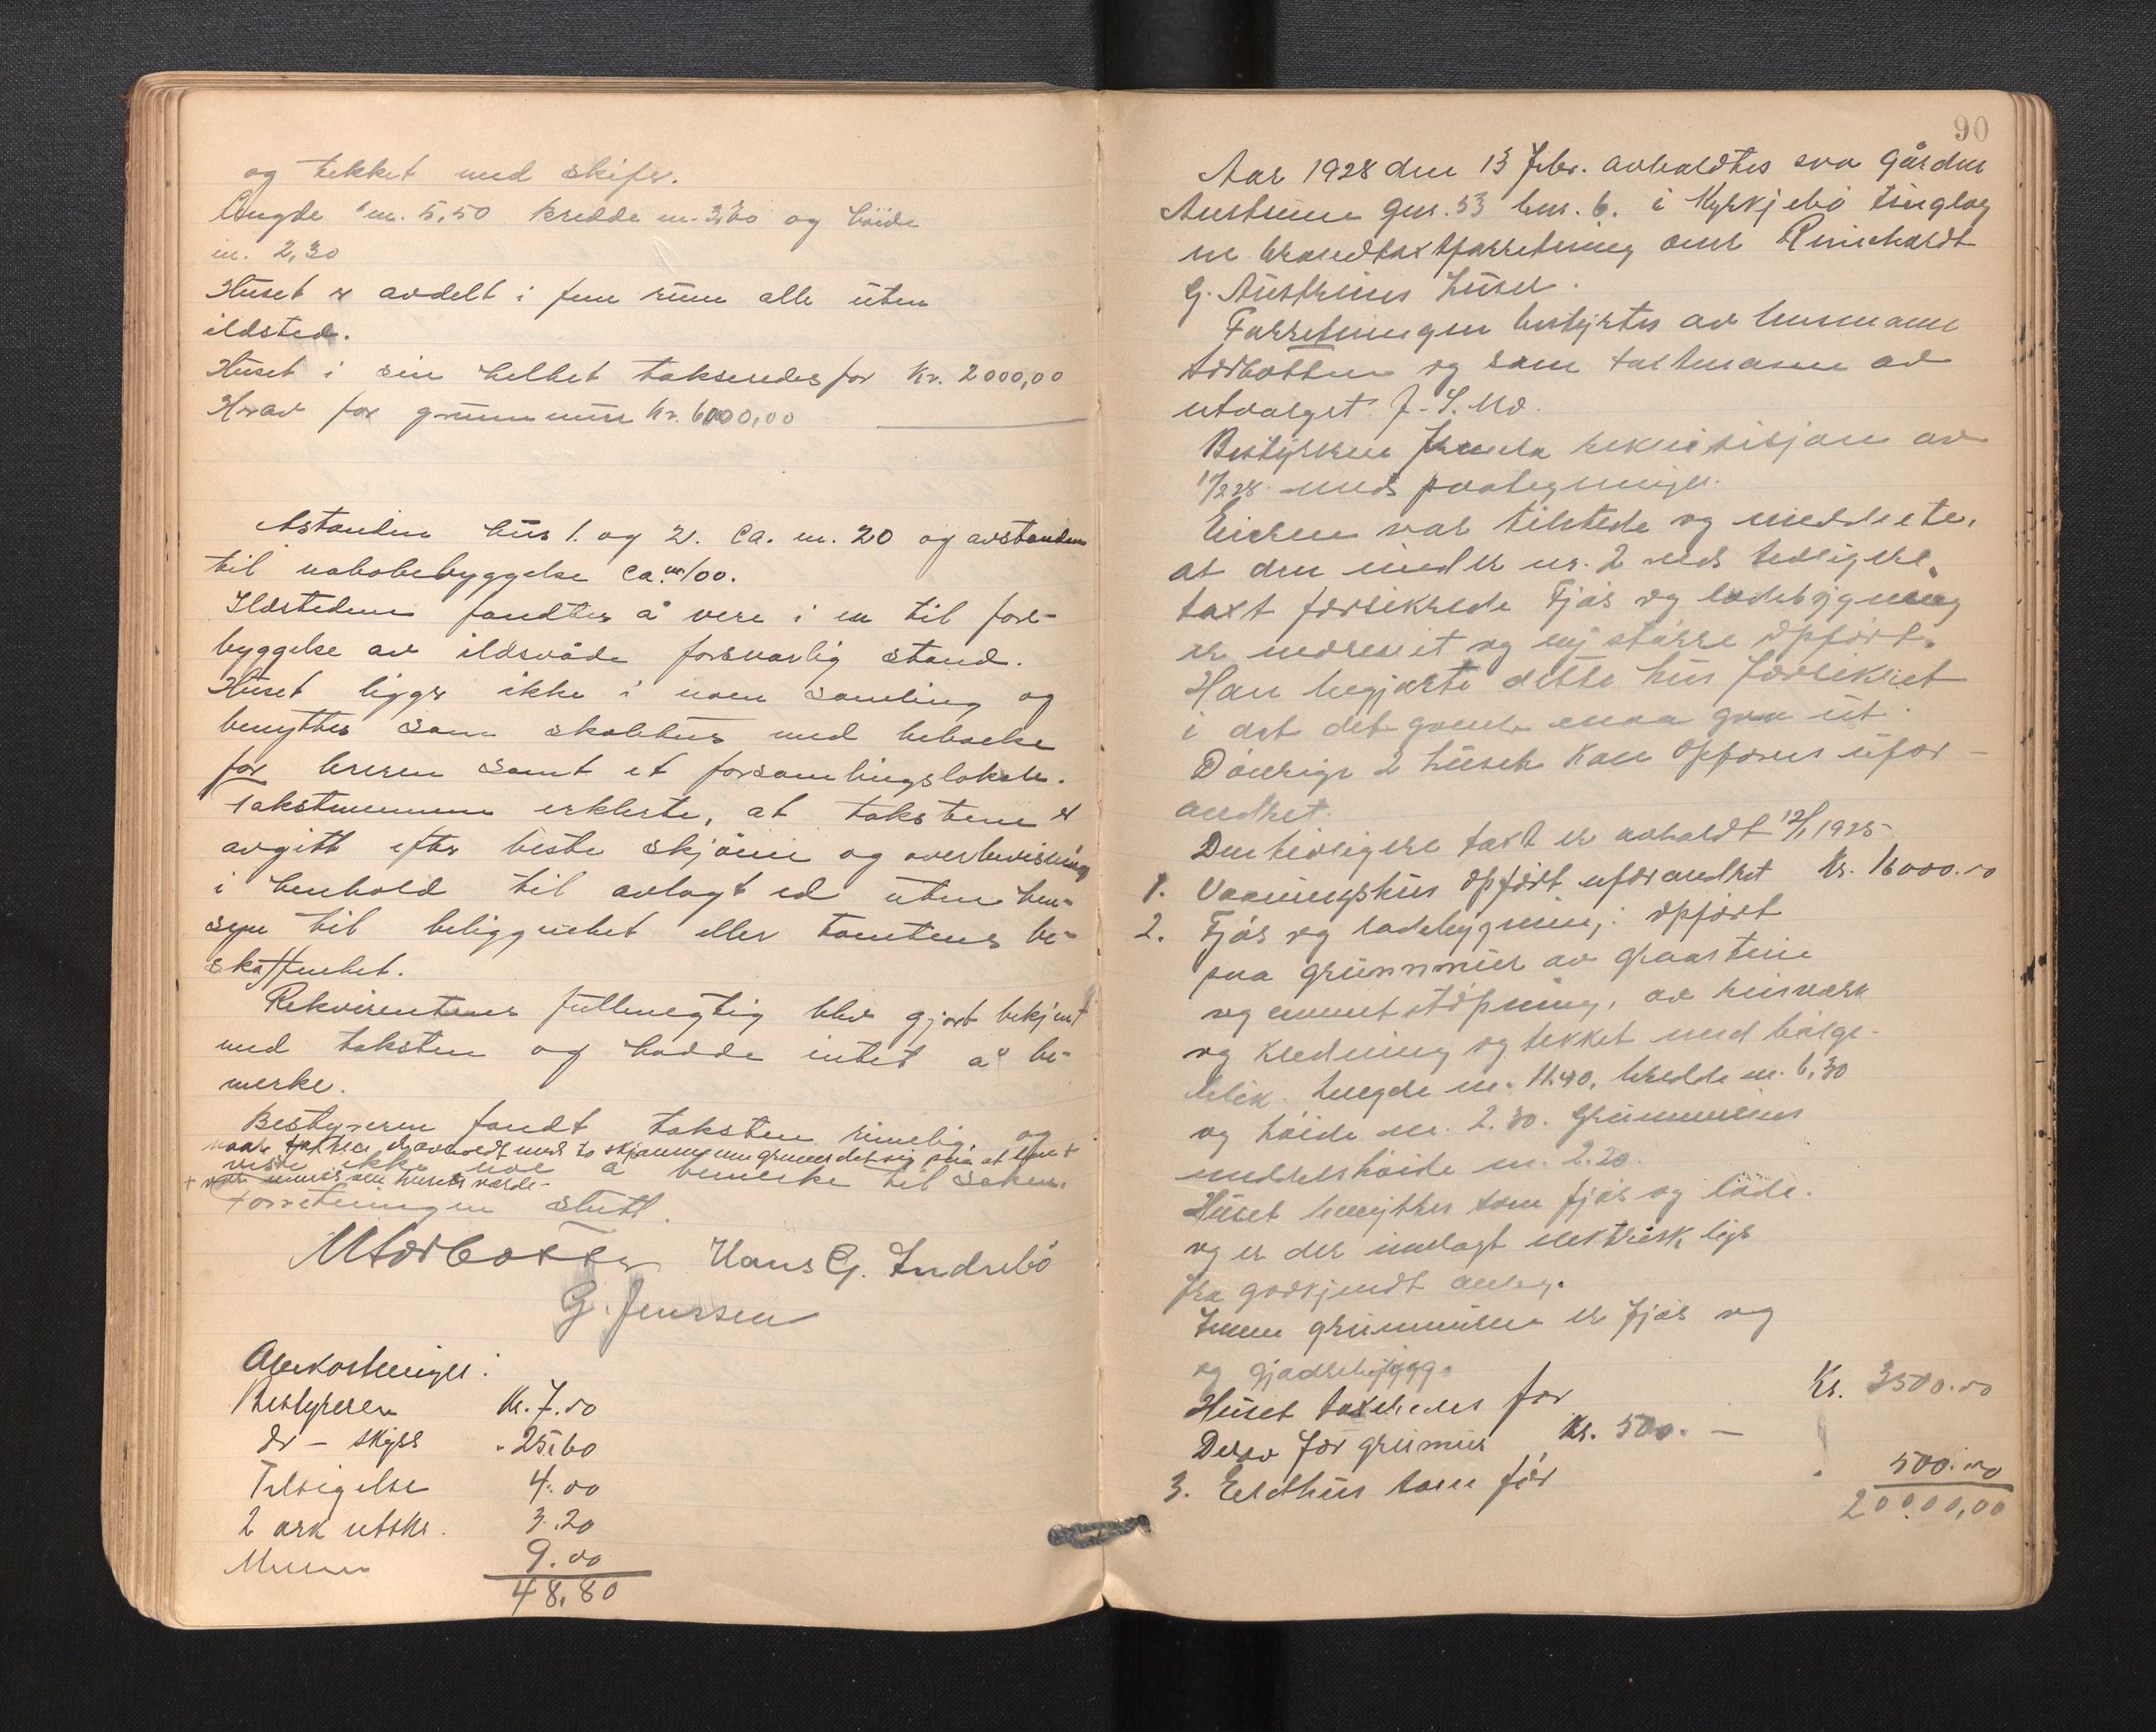 og tekket med skifer.
Lengde m. 5,50 bredde m. 3,60 og høide
m. 2,30
Huset er avdelt i fem rum alle uten
ildsted.
Huset i sin helhet takseredes for Kr. 2000,00
Hvav for grunnmur kr. 6000,00
Avstanden hus 1. og 2. Ca. m. 20 og avstanden
til nabobebyggelse Ca. m. 100.
Ildstedene fandtes å vere i en til fore-
byggelse av ildsvåde forsvarlig stand.
Huset ligger ikke i noen samling og
benyttes som skolehus med beboelse
for læreren samt et forsamlingslokale.
Takstmennene erklerte, at taksten er
avgitt efter beste skjønn og overbevisning
i henhold til avlagt ed uten hen-
syn til beliggenhet eller tomtens be-
skaffenhet.
Rekvirentens fullmegtig blev gjort bekjent
med taksten og hadde intet å be-
merke.
Bestyreren fandt taksten rimelig, og
naar taksten er avholdt med to skjønnsmenn grunner det sig paa at
visste ikke noe å bemerke til saken.
husets værde
Forretningen slutt.
M Sørbotten Hans G. Indrebö
G. Jenssen
Omkostninger:
Bestyreren Kr. 7.00
Do - skyss - 25.60
Tilsigelse 4.00
2 ark utskr. 3.20
Mennene 9.00
48,80
90
Aar 1928 den 13 Febr. avholdtes paa gården
Austreim gnr. 53 bnr. 6. i Kyrkjebø tinglag
en brandtaxtforretning over Reinchardt
G. Austreims huser.
Forretningen bestyrtes av lensmann
Sørbotten og som taxtmann av
utvalget J. S. Mo.
Bestyreren fremla rekvisisjon av
11/2 28 med paategninger.
Eieren var tilstede og meddelte,
at den under nr. 2 ved tidligere
taxt forsikrede fjøs og ladebygning
er nedrevet og ny større opført.
Han begjærte dette hus forsikret
i det det gamle maa gaa ut.
De øvrige 2 huser kan opføres ufor-
andret.
Den tidligere taxt er avholdt 12/1 1925
1. Vaaningshus opført uforandret Kr. 16000.00
2. Fjøs og ladebygning: opført
paa grunnmur av graastein
og cementstøpning, av bisverk
og kledning og tekket med bølge-
blik. Lengde m. 11.40, bredde m. 6,30
og høide m. 2.30. Grunnmurens
middelshøide m. 2.20.
Huset benyttes som fjøs og løde.
og er der innlagt elektrisk lys
fra godkjendt anleg.
Innen grunnmuren er fjøs og
og gjødselbygg.
Huset taxeredes for Kr. 3500.00
Derav for grunmur Kr. 500. —
3. Eldhus som før 500.00
20000,00